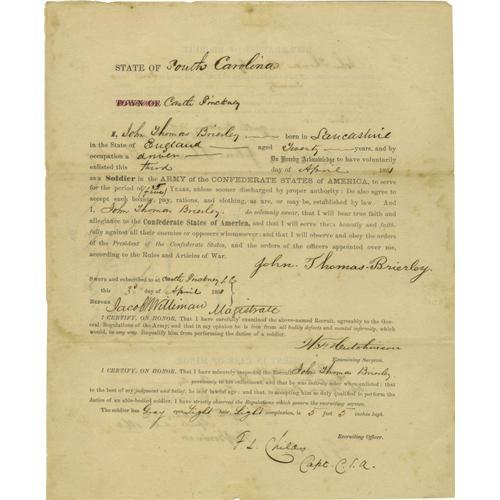 STATE OF South Carolina
TOWN OF Castle Pinckney
I, John Thomas Brierley born in Lancashire
in the State of England aged Twenty years, and by
occupation a driver Do Hereby Acknowledge to have voluntarily
enlisted this third day of April 1861
as a Soldier in the ARMY OF THE CONFEDERATE STATES OF AMERICA, to serve
for the period of Years, unless sooner discharged by proper authority: Do also agree to
accept such bounty, pay, rations, and clothing, as are, or may be, established by law. And
I, John Thomas Brierley, do solemnly swear, that I will bear true faith and
allegiance to the Confederate States of America, and that I will serve them honestly and faith-
fully against all their enemies or opposers whomsoever: and that I will observe and obey the orders
of the President of the Confederate States, and the orders of the officers appointed over me,
according to the Rules and Articles of War.
John Thomas Brierley.
SWORN and subscribed to at Castle Pinckney S.C.
this 3d day of April 1861
BEFORE Jacob Williman Magistrate
I CERTIFY, ON HONOR, That I have carefully examined the above-named Recruit, agreeably to the Gen-
eral Regulations of the Army; and that in my opinion he is free from all bodily defects and mental infirmity, which
would, in any way, disqualify him from performing the duties of a soldier.
Hutchinson
Examining Surgeon.
I CERTIFY, ON HONOR, That I have minutely inspected the Recruit John Thomas Brierley
previously to his enlistment, and that he was entirely sober when enlisted; that
to the best of my judgment and belief, he is of lawful age; and that, in accepting him as duly qualified to perform the
duties of an able-bodied soldier, I have strictly observed the Regulations which govern the recruiting service.
The soldier has Gray eyes Light hair Light complexion, is 5 feet 5 inches high.
F. L. Childs
Recruiting Officer.
Capt. C.S.A.